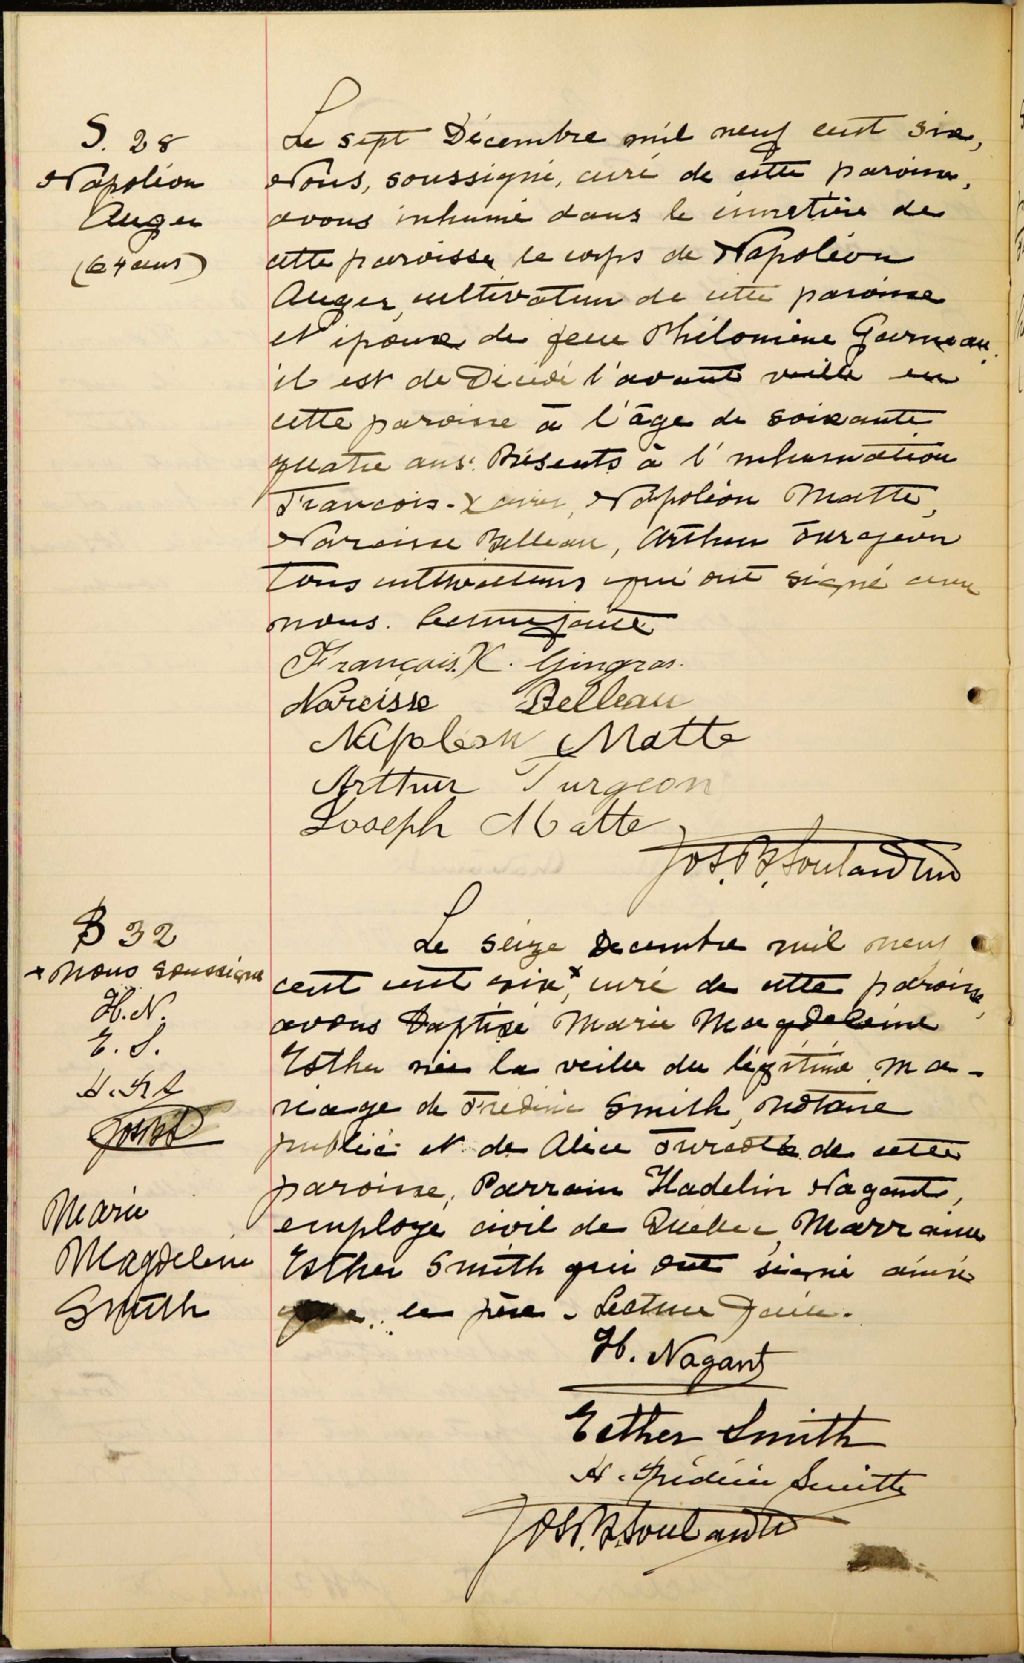 S. 28
Napoléon
Auger
(64 ans)
Le sept Décembre mil neuf cent six,
Nous, soussigné, curé de cette paroisse,
avons inhumé dans le cimetière de
cette paroisse le corps de Napoléon
Auger, cultivateur de cette paroisse
et époux de feu Philomène Garneau.
il est de Décédé l'avant veille en
cette paroisse à l'âge de soixante
quatre ans. Présents à l'inhumation
Francois-Xavier, Napoléon Matte,
Narcisse Belleau, Arthur Turgeon
tous cultivateurs qui ont signé avec
nous. Lecture faite
François.X. Gingras.
Narcisse Belleau
Napoléon Matte
Arthur Turgeon
Joseph Matte
Jos.
B 32
x nous soussigné
H.N.
E. S.
Marie
Magdeleine
Smith
Le seize Decembre mil neuf
cent cent six x, curé de cette paroisse,
avons baptisé Marie Magdeleine
Esther née la veille du légitime ma-
riage de Frédéric Smith, notaire
public et de Alice Turcotte de cette
paroisse, Parrain Hadelin Nagant,
employé civil de Québec, Marraine
Esther Smith qui ont signé ainsi
que le père. Lecture faite.
H. Nagant
Esther Smith
H. Frédéric Smith
Jos.